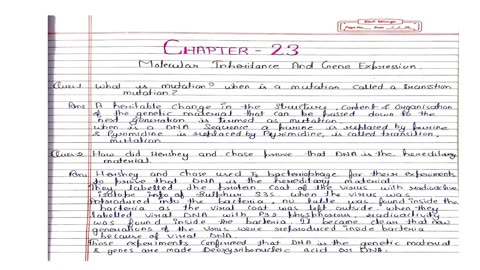 CHAPTER - 23
Molecular Inheritance And Gene Expression.
Ques:1 What is mutation? when is a mutation called a transition
mutation?
Ans A heritable change in the structure, content & organisation
of the genetic material that can be passed down to the
next generation is termed as mutation.
when in a DNA Sequence a purine is replaced by purine
& Pyrimidine is replaced by Pyrimidine, is called transition,
mutation
Ques:2 How did Hershey and chase prove that DNA is the hereditary
material.
Ans Hershey and chase used T2 bacteriophage for their experiments
to prove that DNA is the hereditary material
They labelled the protein coat of the virus with radioactive
isotope of Sulphur S35 when the virus was
introduced into the bacteria, no was found inside the
bacteria as the viral coat was left outside when they
labelled viral DNA with P32 phosphorous, radioactivity
was found inside the bacteria. It became clear that new
generations of the virus were reproduced inside bacteria
because of viral DNA.
These experiments confirmed that DNA is the genetic material
& genes are made Deoxyribonucleic acid or DNA.